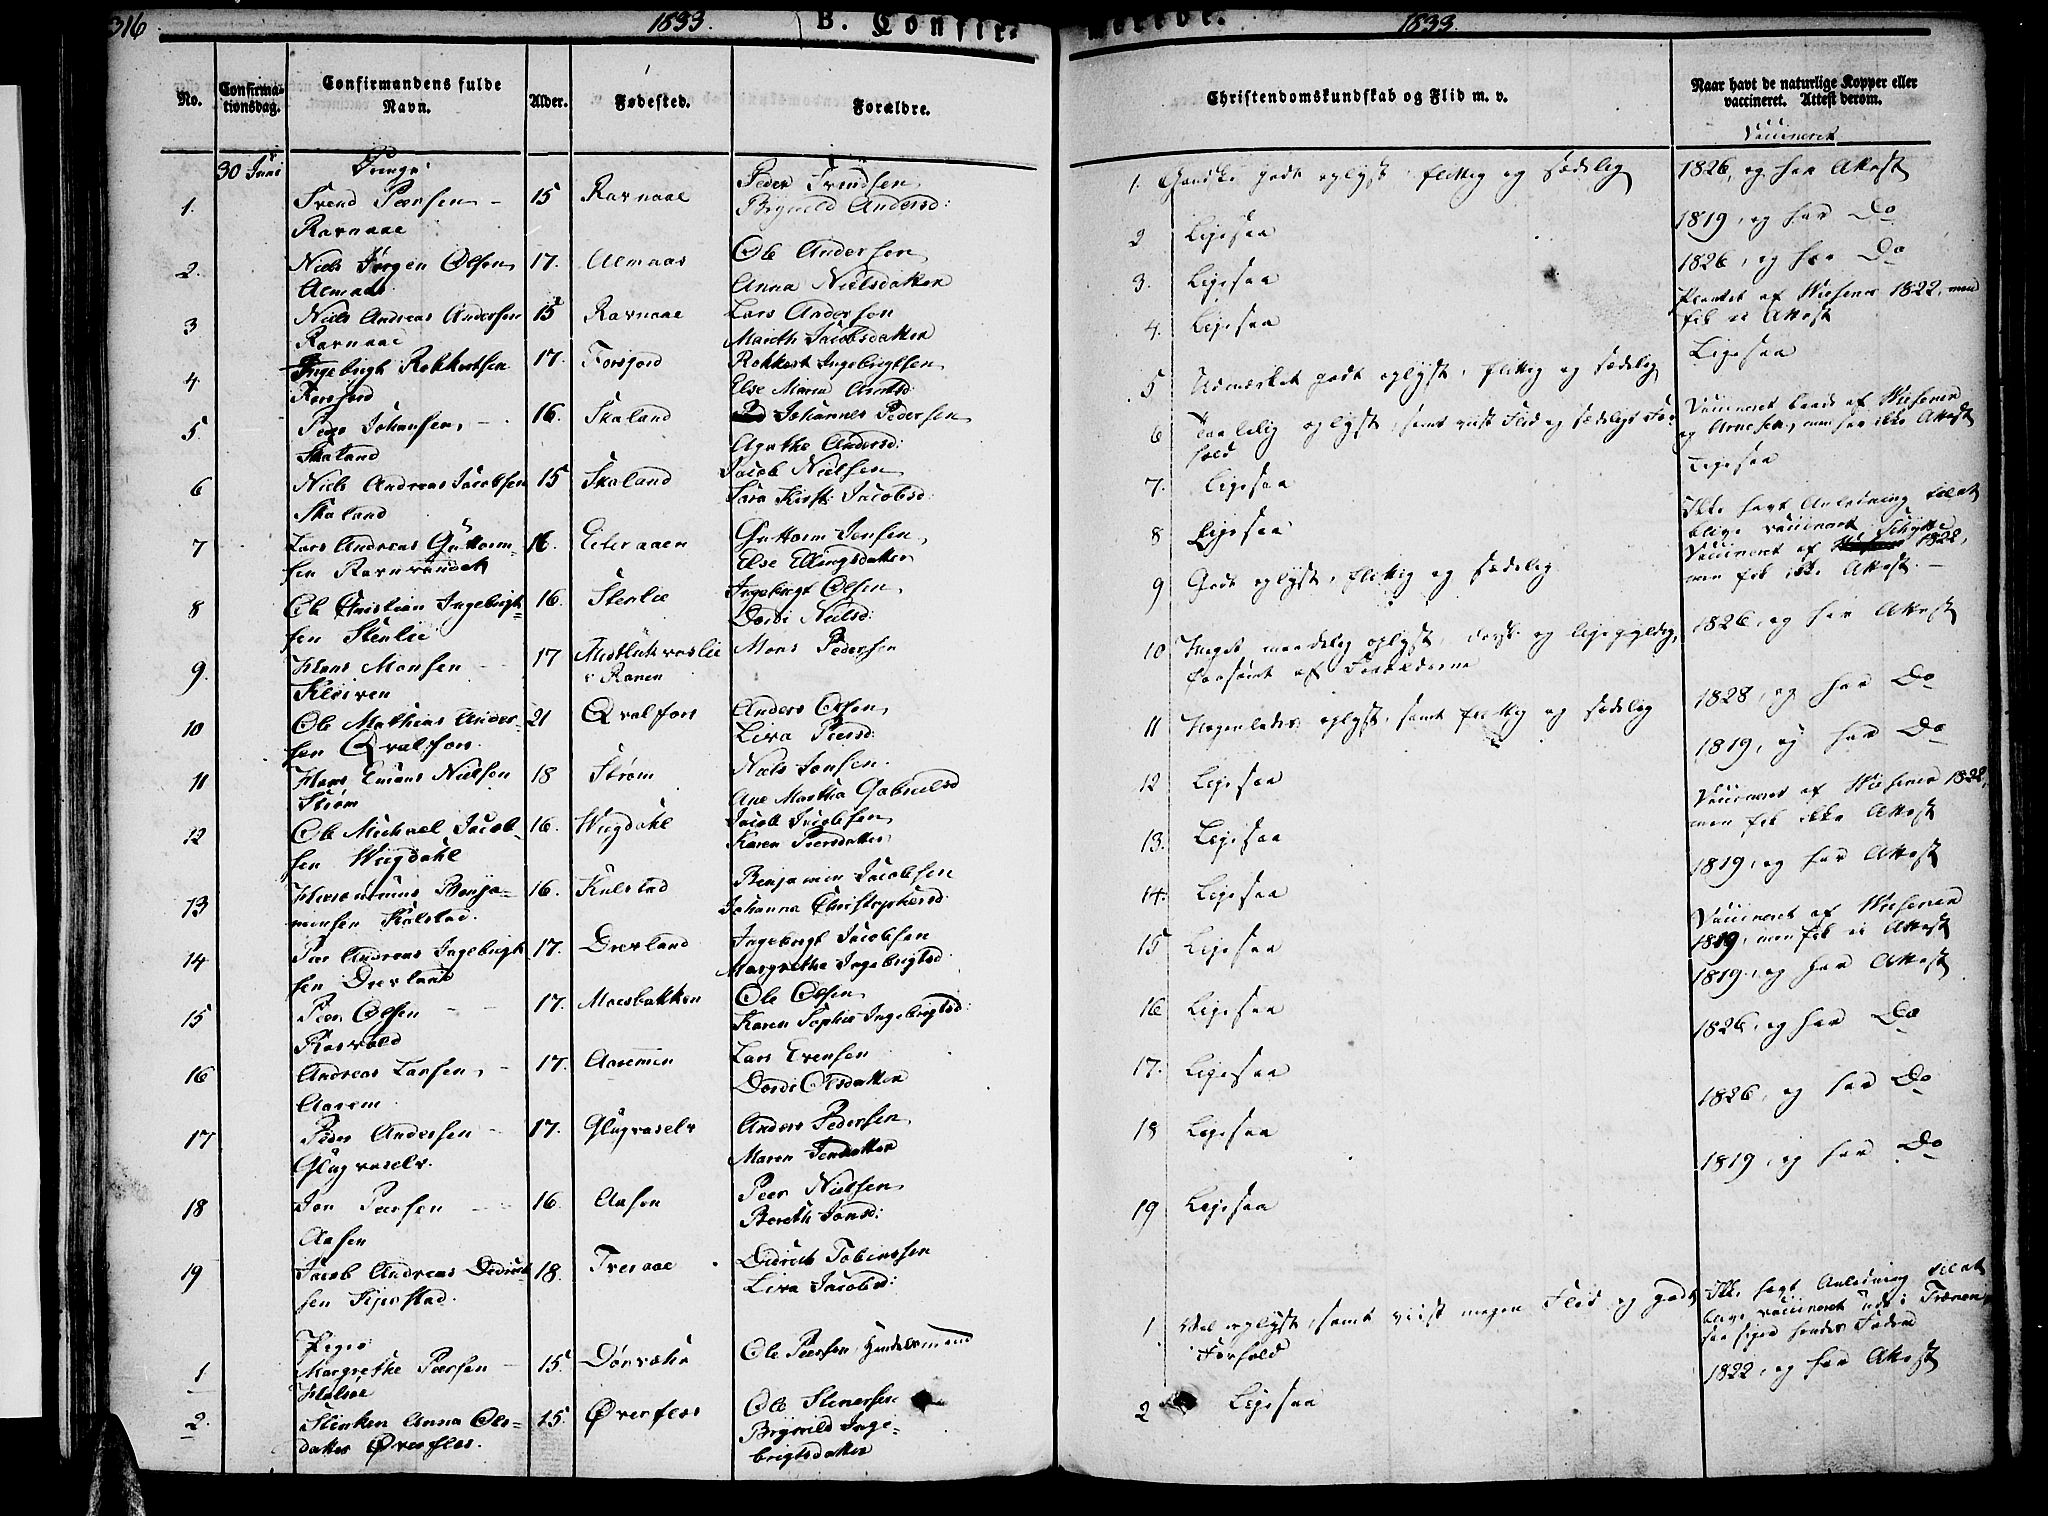 316 1833. B. Confir-
No. Confirma-tionsdag. Confirmandens fulde Navn. Alder. Fødested. Forældre.
30 Juni Drenge
1. Svend Pærsen – Ravnaae 15 Ravnaae Peder Svendsen, Brynild Andersd:
2. Niels Jørgen Olsen, Almaas 17. Almaas Ole Andersen Anna Nielsdatter
3 Niels Andreas Andersen Ravnaae 15 Ravnaae Lars Andersen Marith Jacobsdatter
4 Ingebrigt Rokkertsen Forsjord 17. Forsjord Rokkert Ingebrigtsen, Else Maria Arntsd:
5 Peder Johansen, – Skaland 16. Skaland Johannes Pedersen, Agathe Andersd:
6 Niels Andreas Jacobsen Skaland 15 Skaland Jacob Nielsen Sara Kirst: Jacobsd:
7 Lars Andreas Guttorm-sen Ravnvandet 16. Eiteraaen Guttorm Jensen, Else Ellingsdatter
8 Ole Christian Ingebrigt-sen Stenlie 16. Stenlie Ingebrigt Olsen, Dordi Nielsd:
9. Hans Monsen Kløiven 17 i Ranen Mons Pedersen
10 Ole Mathias Ander-sen Qvalfors. 21 Qvalfors Anders Olsen, Liva Peersd:
11 Hans Nielsen Strøm 18 Strøm Niels Jonsen. Ane Martha Gabrielsd
12 Ole Michael Jacob-sen Wiigdahl 16. Wiigdahl Jacob Jacobsen Karen Peersdatter
13 Benja-minsen Kulstad. 16. Kulstad Benjamin Jacobsen Johanna Christophersd:
14 Andreas Ingebrigt-sen Drevland 17. Drevland Ingebrigt Jacobsen Margrethe Ingebrigtsd.
15 Peer Olsen 17. Moesbakken Ole Olsen, Karen Sophie Ingebrigtsd:
16 Andreas Larsen, – 17. Lars Evensen Dordi Olsdatter
17 Peder Andersen – Glugvaselv. 17. Glugvaselv Anders Pedersen, Maren
18 Jon Peersen Aasen 16 Aasen Peer Nielsen, Bereth Jonsd:
19 Jacob Andreas Didrik-sen 18. Didrich Tobiassen Liva Jacobsd:
Piger
1. Margrethe Peersen – 15 Ole Peersen,
2. Anna Ols-datter Øverfles. 15. Øverfles Ole Stenersen Brynild Inge-brigtsdatter
1833.
Christendomskundskab og Flid m. v. Naar havt de naturlige Kopper eller vaccineret. Attest derom.
Vaccineret
1. Gandske godt oplyst, flittig og sædelig 1826, og har Attest
2 Ligesaa 1819, og har Do
3. Ligesaa 1826, og har Do
4. Ligesaa af Wiesener 1822, men fik ei Attest
5 Udmærket godt oplyst, flittig og sædelig Ligesaa
6 Taalelig oplyst, samt viist Flid og sædeligt For-hold Vaccineret baade af Wiesener og Arnesen, men har ikke Attest
7. Ligesaa Ligesaa
8 Ligesaa Ikke havt Anledning til at blive vaccineret
9 Godt oplyst, flittig og sædelig Vaccineret af Schytte 1828, men fik ikke Attest. –
10 Meget maadelig oplyst, dorsk og ligegyldig, forsømt af Forældrene 1826, og har Attest
11 Nogenledes oplyst, samt flittig og sædelig 1828, og har Do
12 Ligesaa 1819, og har Do
13. Ligesaa Vaccineret af Wiesener 1822, men fik ikke Attest
14. Ligesaa 1819, og har Attest
15 Ligesaa Vaccineret af Wiesener 1819, men fik ei Attest
16 Ligesaa 1819, og har Attest
17. Ligesaa 1826, og har Do
18 Ligesaa 1826, og har Do
19 Ligesaa 1819, og har Do
1. Vel oplyst, samt viist megen Flid og godt Forhold Ikke havt Anledning til at blive vaccineret ude i Trænen, saa siger hendes Fader
2 Ligesaa 1822, og har Attest